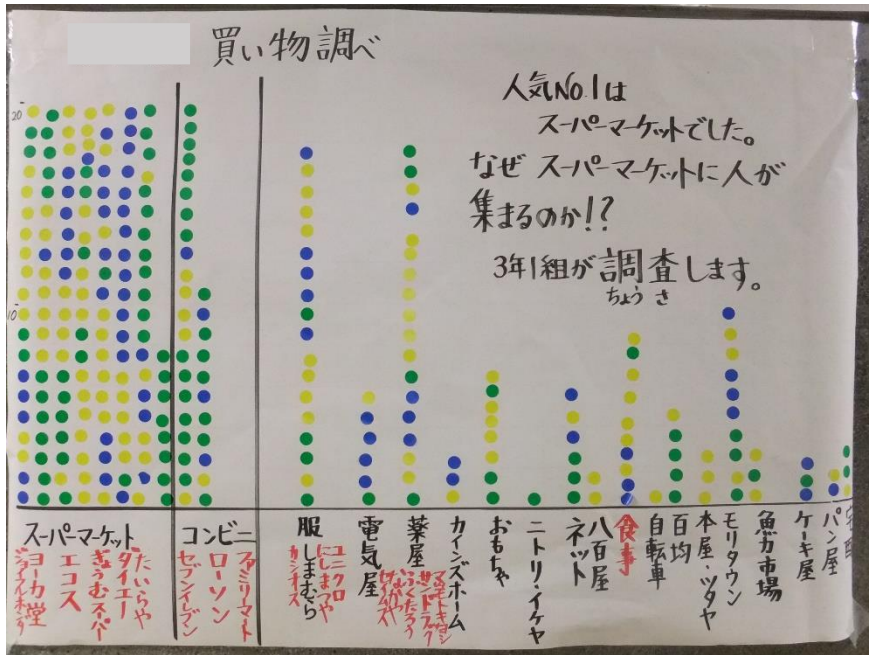 買い物調べ
人気No.1は
スーパーマーケットでした。
なぜスーパーマーケットに人が
集まるのか!?
3年1組が調査します。
ちょうさ
20
10
スーパーマーケット
ヨーカ堂
エコス
ぎょうむスーパー
ダイエー
たいらや
コンビニ
セブンイレブン
ローソン
ファミリーマート
服
しまむら
にしまつや
ユニクロ
電気屋
薬屋
サンドラッグ
マツモトキヨシ
カインズホーム
おもちゃ
ニトリ・イケヤ
ネット
八百屋
食事
自転車
百均
本屋・ツタヤ
モリタウン
魚力市場
ケーキ屋
パン屋
宅配